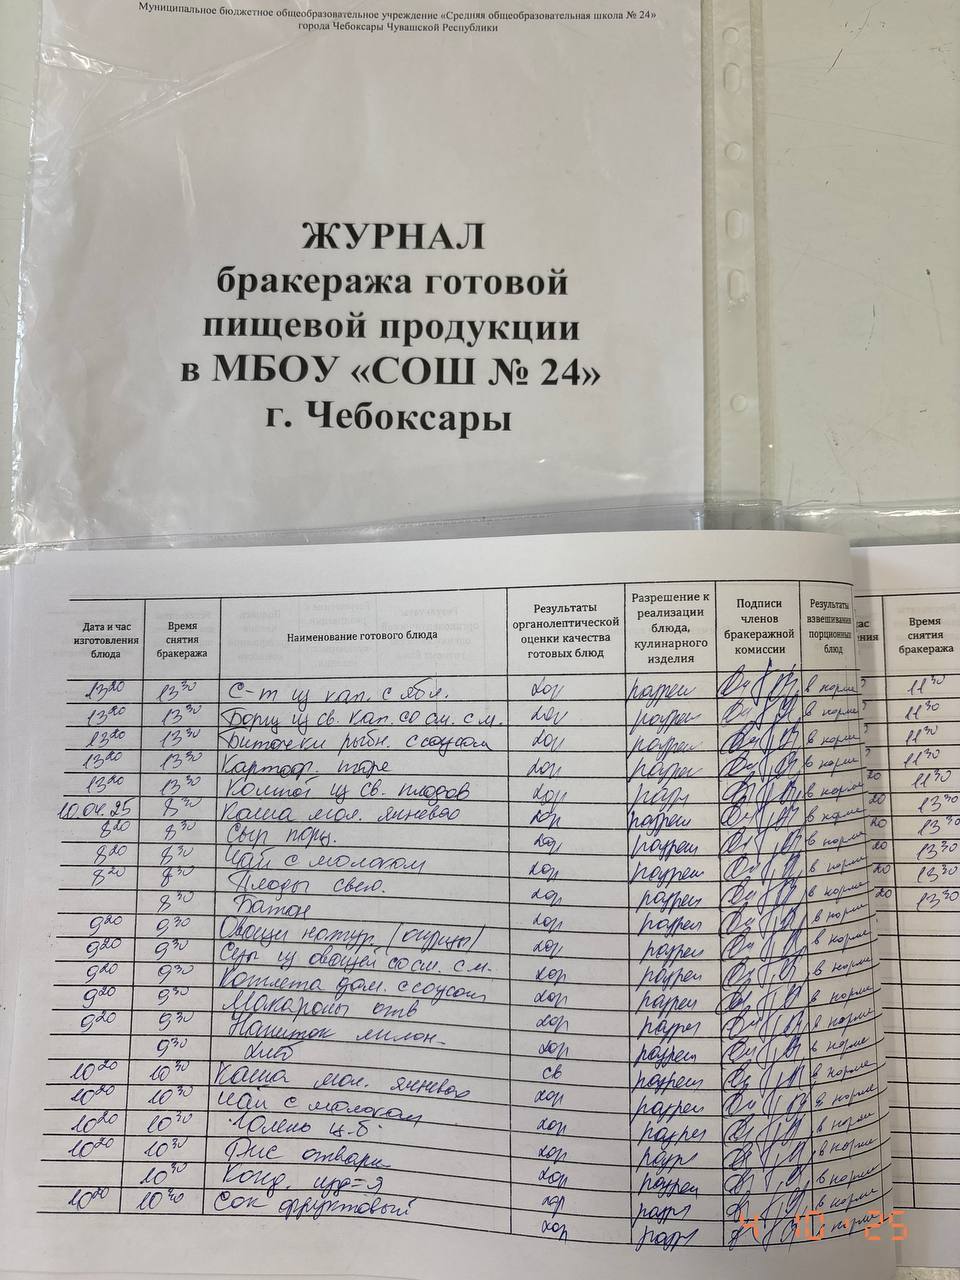 Муниципальное бюджетное общеобразовательное учреждение «Средняя общеобразовательная школа № 24»
города Чебоксары Чувашской Республики
ЖУРНАЛ
бракеража готовой
пищевой продукции
в МБОУ «СОШ № 24»
г. Чебоксары
Дата и час изготовления блюда Время снятия бракеража Наименование готового блюда Результаты органолептической оценки качества готовых блюд Разрешение к реализации блюда, кулинарного изделия Подписи членов бракеражной комиссии Результаты взвешивания порционных блюд Время снятия бракеража
13 20 13 30 С-т из кап. с ябл. хор разреш в норме 11 30
13 20 13 30 Борщ из св. кап. со см. с м. хор разреш в норме 11 30
13 20 13 30 Биточки рыбн. с соусом хор разреш в норме 11 30
13 20 13 30 Картоф. пюре хор разреш в норме 11 30
13 20 13 30 Компот из св. плодов хор разр в норме 20 11 30
10.04.25 8 30 Каша мол. ячневая хор разреш в норме 20 13 30
8 20 8 30 Сыр порц. хор разреш в норме 20 13 30
8 20 8 30 Чай с молоком хор разреш в норме 20 13 30
8 20 8 30 Плоды свеж. хор разреш в норме 20 13 30
8 30 Батон хор разреш в норме 20 13 30
9 20 9 30 Овощи натур. (огурцы) хор разреш в норме
9 20 9 30 Суп из овощей со см. с м. хор разреш в норме
9 20 9 30 Котлета дом. с соусом хор разреш в норме
9 20 9 30 Макароны отв хор разреш в норме
9 20 9 30 Напиток лимон. хор разреш в норме
9 30 Хлеб св разреш в норме
10 20 10 30 Каша мол. ячневая хор разреш в норме
10 20 10 30 Чай с молоком хор разреш в норме
10 20 10 30 Голень ц.б. хор разр в норме
10 20 10 30 Рис отварн хор разреш в норме
10 30 Конд. изд-я хор разр в норме
10 20 10 30 Сок фруктовый хор разр в норме
4 10 '25